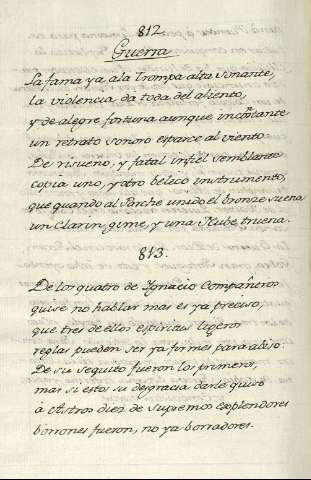 812.
Guerra
La fama ya, a la Trompa alta sonante,
la violencia da toda del aliento,
y de alegre fortuna aunque incõstante
un retrato sonoro esparce al viento
De risueno, y fatal infiel semblante
copia uno, y otro belico instrumento,
que quando al Parche unido el bronze suena
un Clarin gime, y una Nube truena.
813.
De los quatro de Ignacio Compañeros
quise no hablar mas es ya preciso,
que tres de ellos espiritus ligeros
reglas pueden ser ya firmes para aviso.
De su sequito fueron los primeros,
mas si estos su desgracia darle quiso
à Astros diez de supremos esplendores
borrones fueron, no ya borradores.